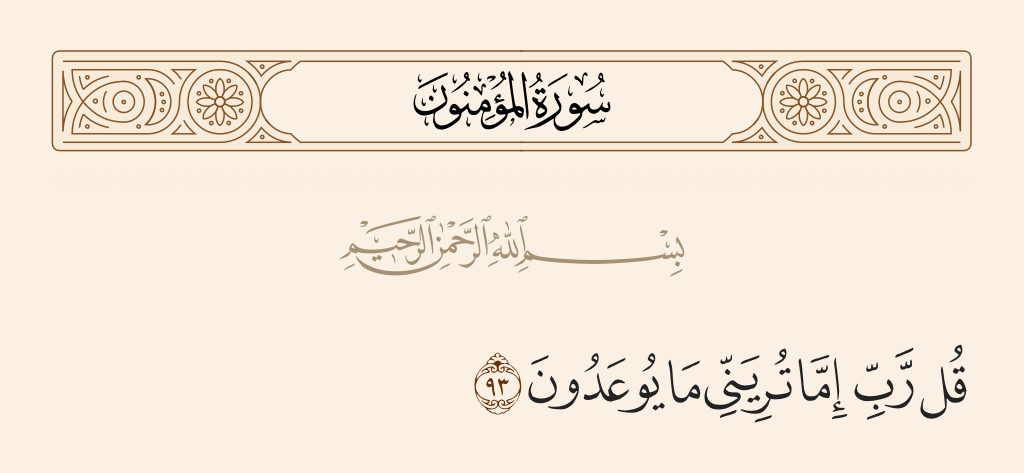 سُورَةُ المُؤْمِنُونَ
بِسْمِ ٱللَّهِ ٱلرَّحْمَٰنِ ٱلرَّحِيمِ
قُل رَّبِّ إِمَّا تُرِيَنِّى مَا يُوعَدُونَ ٩٣